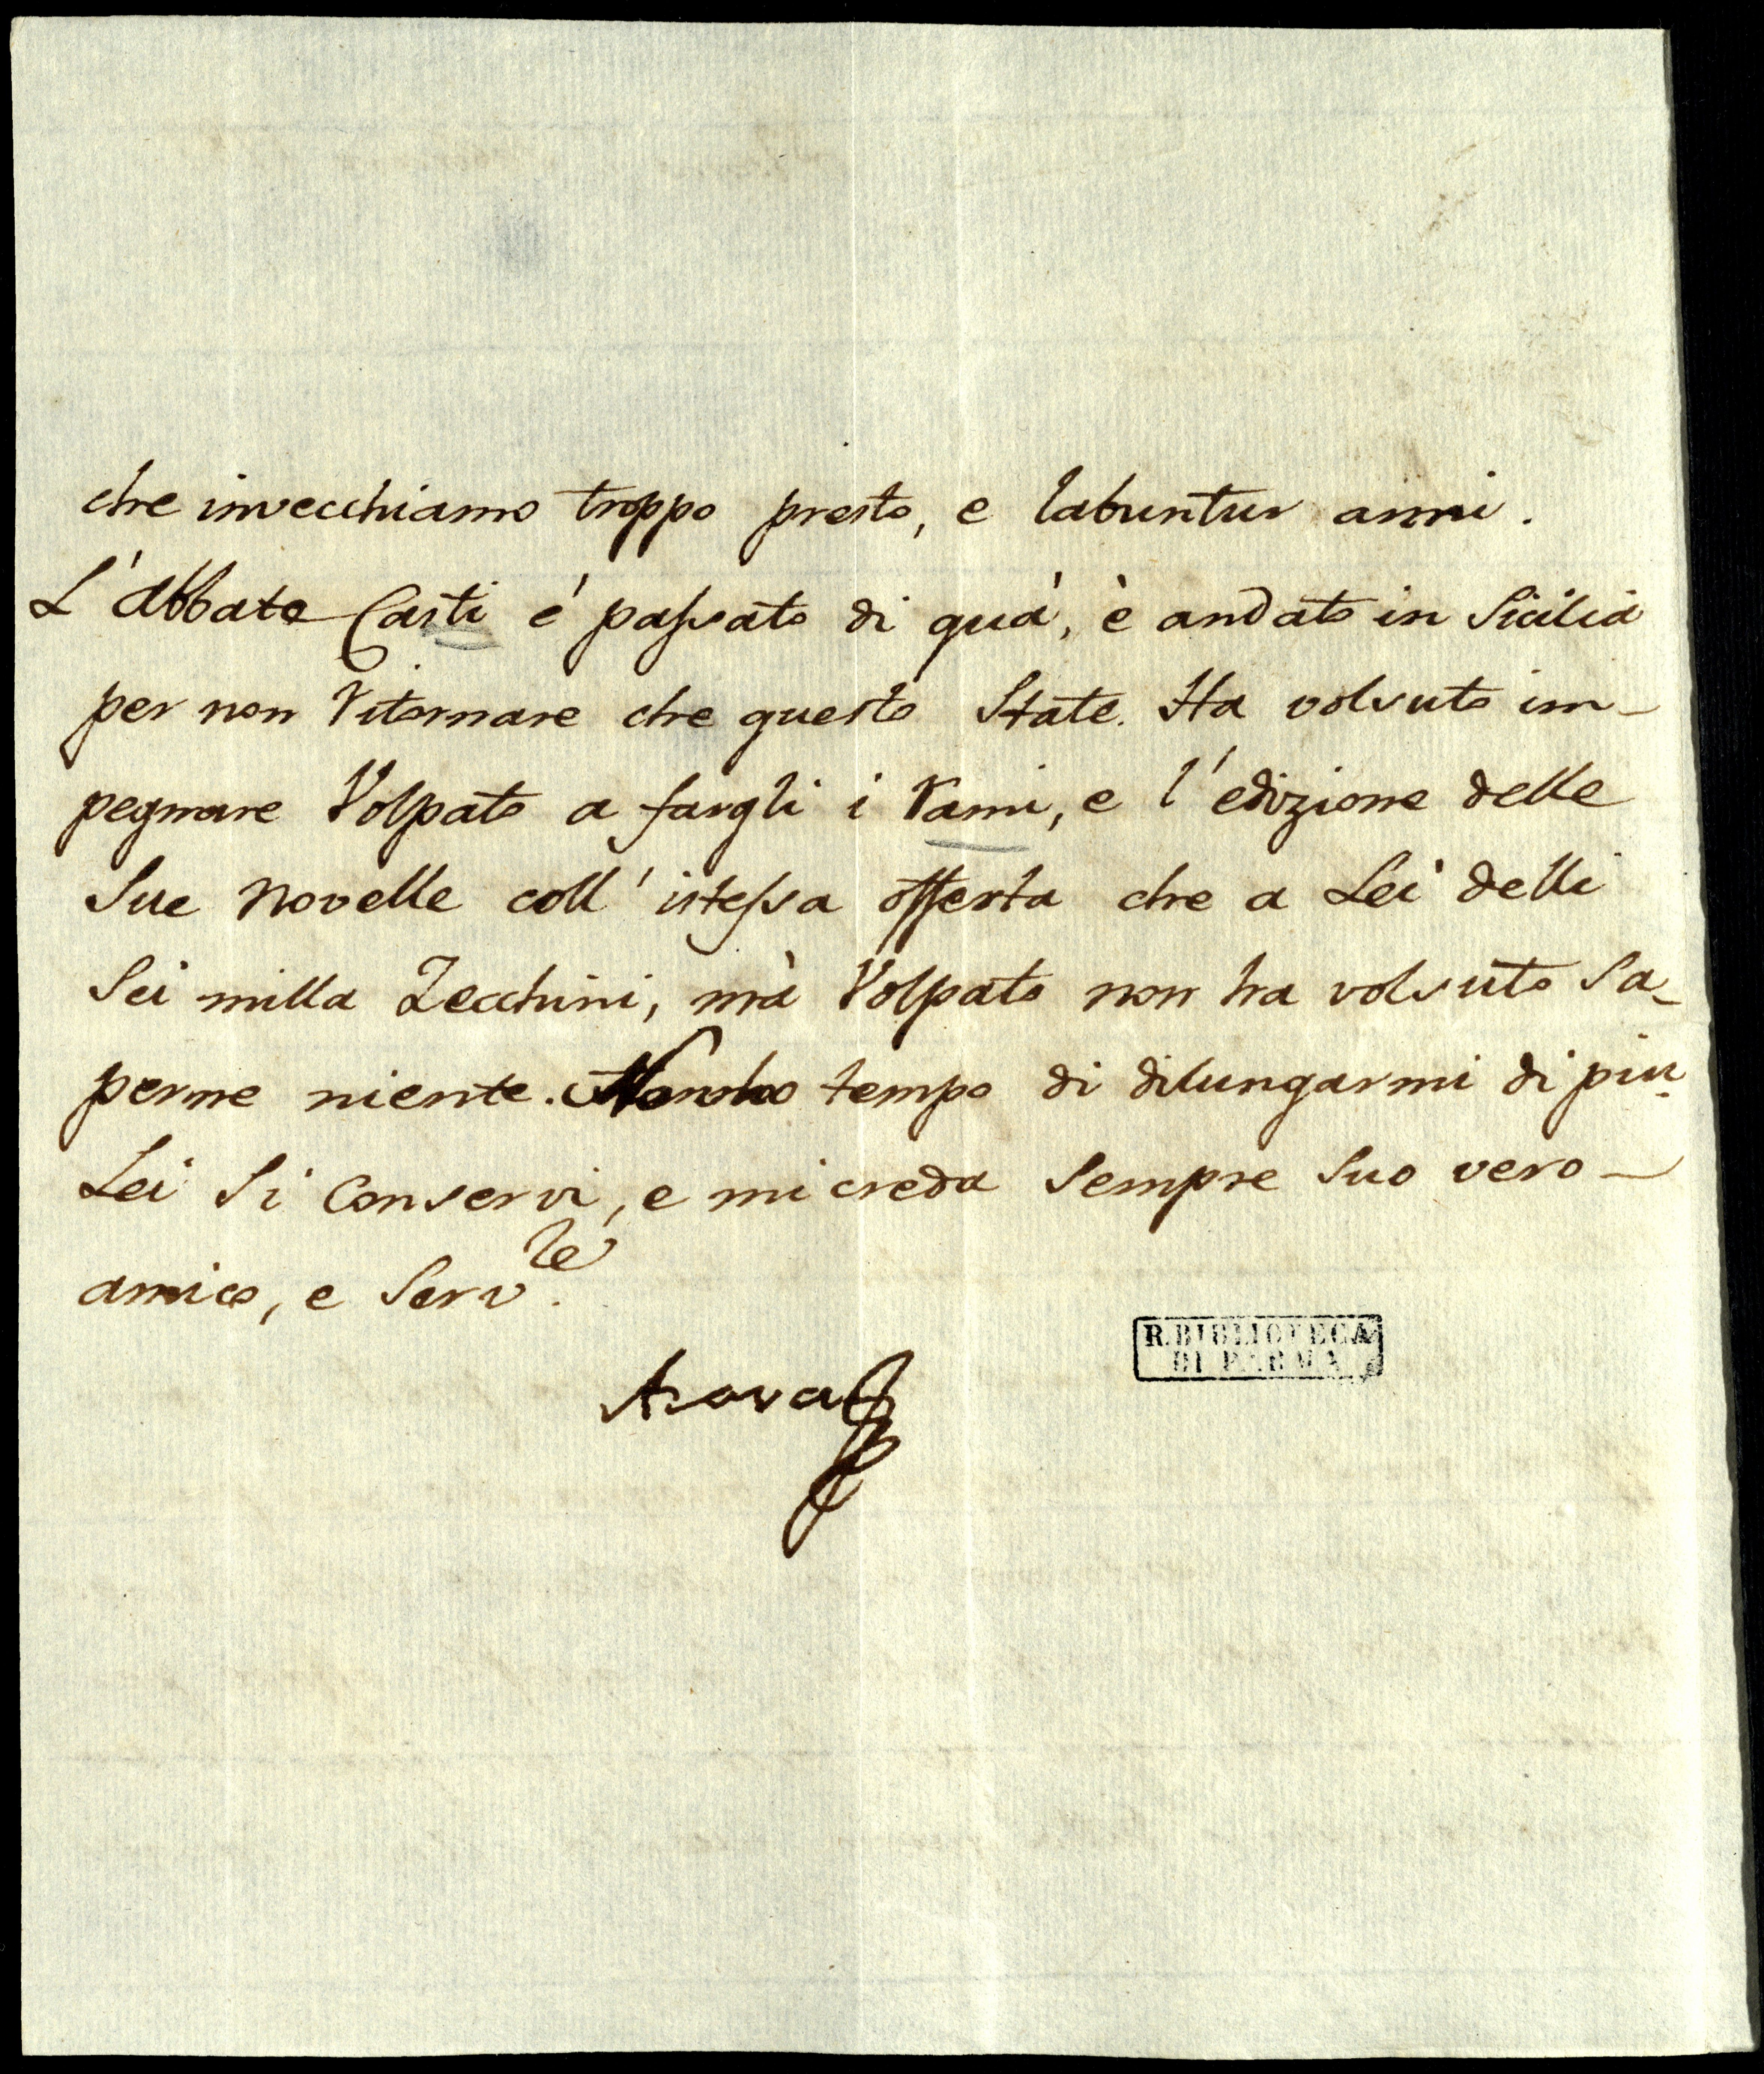 che invecchiamo troppo presto, e labuntur anni.
L'Abbate Casti é passato di quà, è andato in Sicilia
per non ritornare che questo State. Ha volsuto im-
pegnare Volpato a fargli i rami, e l'edizione delle
Sue Novelle coll'istessa offerta che a Lei delli
Sei milla Zecchini, mà Volpato non ha volsuto Sa-
perne niente. Non ho tempo di dilungarmi di piu.
Lei Si Conservi, e mi creda Sempre Suo vero
amico, e Serv.re
Azara
R. BIBLIOTECA
DI PARMA